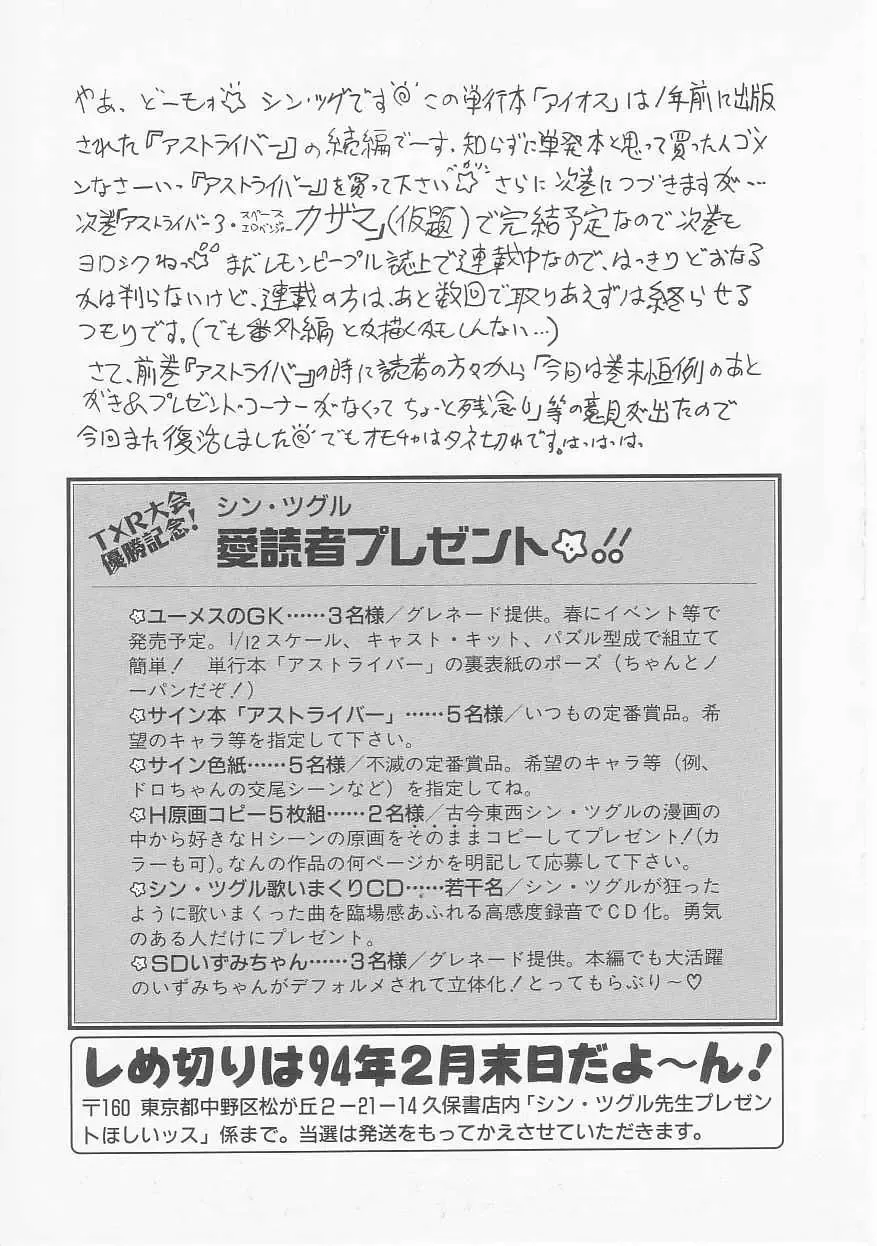 やあ、どーもォ☆ シン・ツグです この単行本「アイオス」は1年前に出版
された『アストライバー』の続編でーす。知らずに単発本と思って買った人ゴメ
ンなさーいっ『アストライバー』を買って下さい☆ さらに次巻につづきますが…
次巻「アストライバー3・スペースエロベンジャーカザマ」(仮題)で完結予定なので次巻も
ヨロシクねっ☆ まだレモンピープル誌上で連載中なので、はっきりどおなる
かは判らないけど、連載の方は、あと数回で取りあえずは終らせる
つもりです。(でも番外編とか描くかもしんない…)
さて、前巻『アストライバー』の時に読者の方々から「今回は巻末恒例のあと
がき&プレゼント・コーナーがなくってちょっと残念り」等の意見が出たので
今回また復活しました でもオモチャはタネ切れです。はっはっは、
TXR大会
優勝記念!
シン・ツグル
愛読者プレゼント☆!!
☆ユーメスのGK……3名様/グレネード提供。春にイベント等で
発売予定。1/12スケール、キャスト・キット、パズル型成で組立て
簡単! 単行本「アストライバー」の裏表紙のポーズ(ちゃんとノ
ーパンだぞ!)
☆サイン本「アストライバー」……5名様/いつもの定番賞品。希
望のキャラ等を指定して下さい。
☆サイン色紙……5名様/不滅の定番賞品。希望のキャラ等(例、
ドロちゃんの交尾シーンなど)を指定してね。
☆H原画コピー5枚組……2名様/古今東西シン・ツグルの漫画の
中から好きなHシーンの原画をそのままコピーしてプレゼント!(カ
ラーも可)。なんの作品の何ページかを明記して応募して下さい。
☆シン・ツグル歌いまくりCD……若干名/シン・ツグルが狂った
ように歌いまくった曲を臨場感あふれる高感度録音でCD化。勇気
のある人だけにプレゼント。
☆SDいずみちゃん……3名様/グレネード提供。本編でも大活躍
のいずみちゃんがデフォルメされて立体化!とってもらぶり〜♡
しめ切りは94年2月末日だよ〜ん!
〒160 東京都中野区松が丘2-21-14久保書店内「シン・ツグル先生プレゼン
トほしいッス」係まで。当選は発送をもってかえさせていただきます。